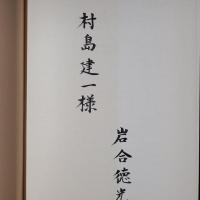 村島建一様
岩合徳光